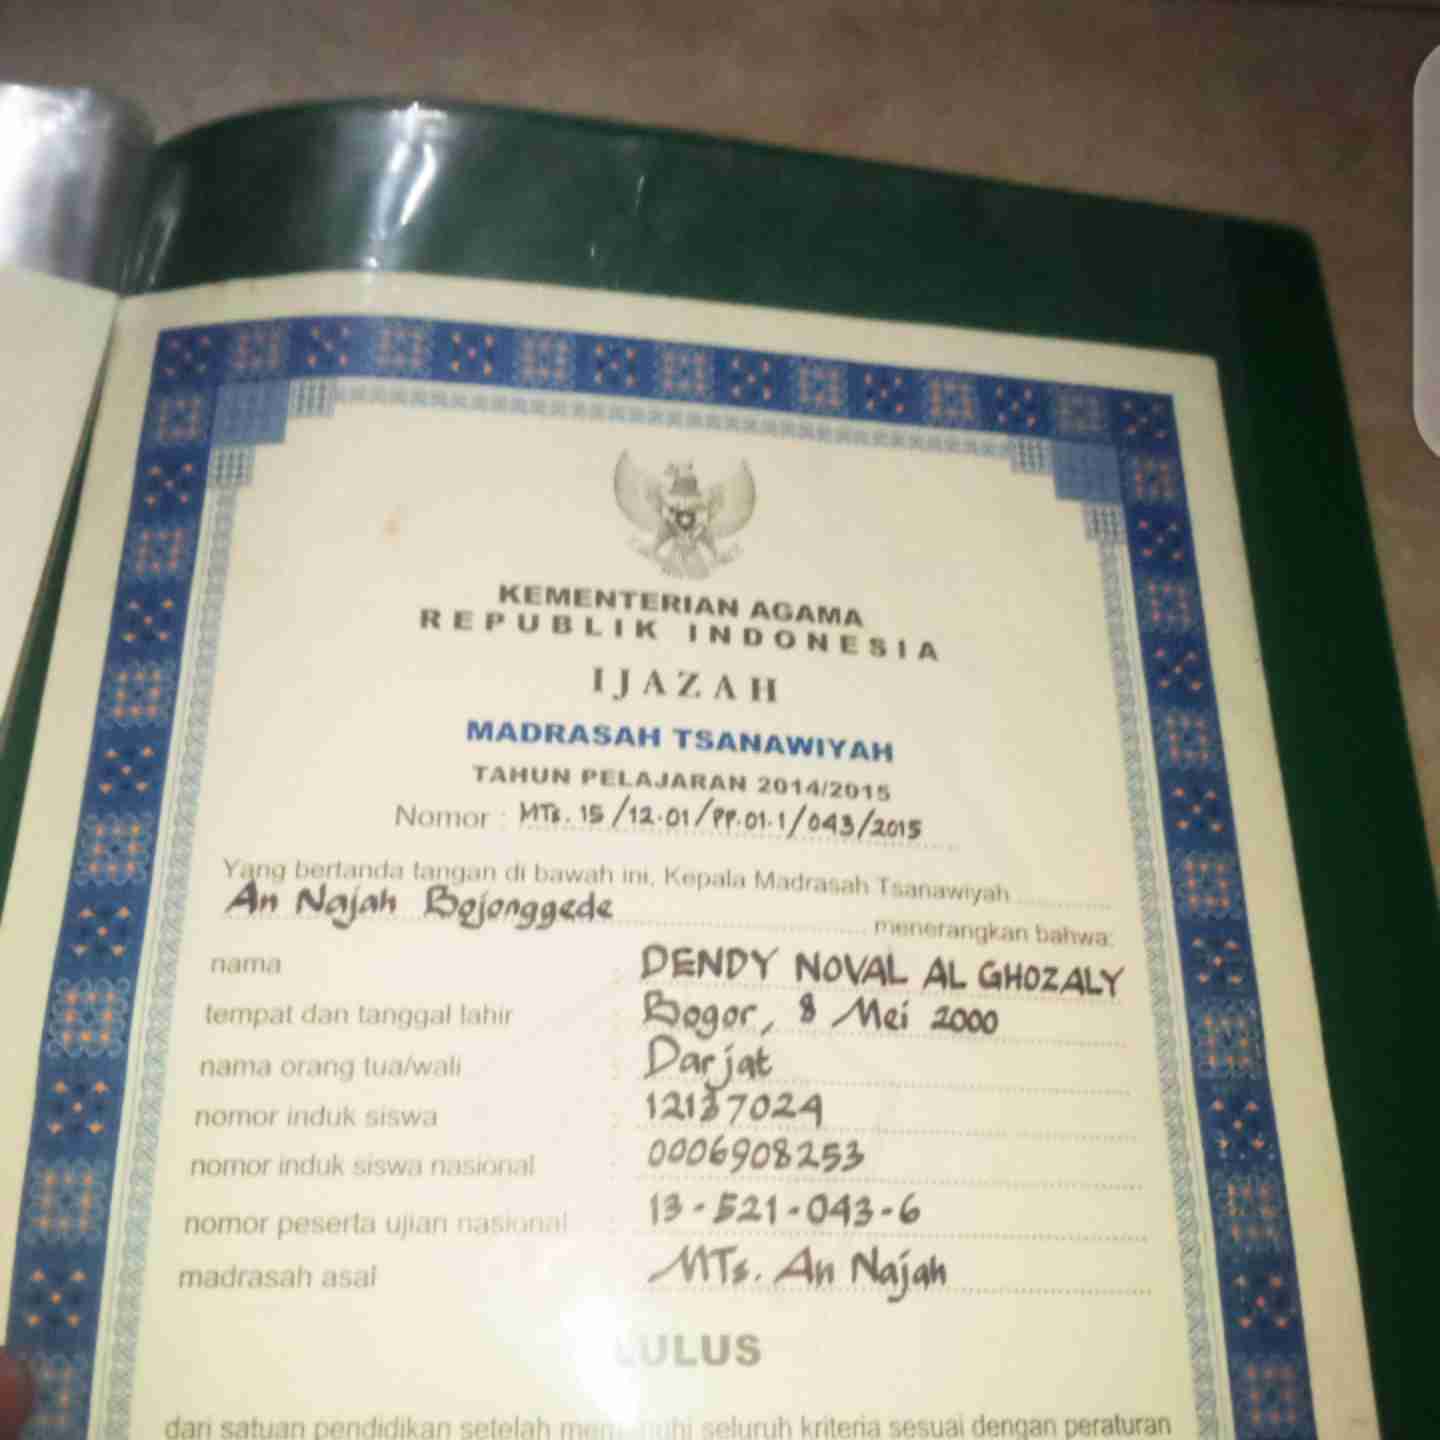 KEMENTERIAN AGAMA
REPUBLIK INDONESIA
IJAZAH
MADRASAH TSANAWIYAH
TAHUN PELAJARAN 2014/2015
Nomor : MTs. 15/12.01/PP.01.1/043/2015
Yang bertanda tangan di bawah ini, Kepala Madrasah Tsanawiyah
An Najah Bojonggede menerangkan bahwa:
nama : DENDY NOVAL AL GHOZALY
tempat dan tanggal lahir : Bogor, 8 Mei 2000
nama orang tua/wali : Darjat
nomor induk siswa : 12137024
nomor induk siswa nasional : 0006908253
nomor peserta ujian nasional : 13-521-043-6
madrasah asal MTs. An Najah
LULUS
dari satuan pendidikan setelah memenuhi seluruh kriteria sesuai dengan peraturan